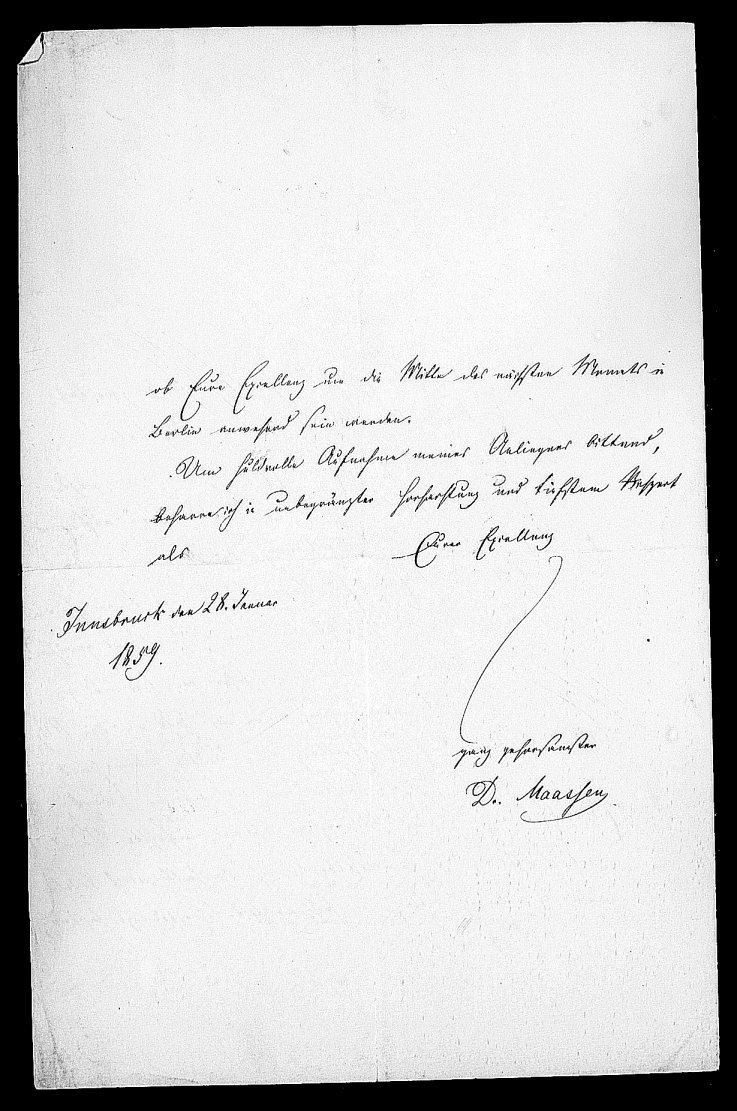 ob Eure Excellenz um die Mitte des nächsten Monats in
Berlin anwesend sein werden.
Um huldvolle Aufnahme meines Anliegens bittend,
beharre ich in unbegränzter Hochachtung und tiefstem Respect
als Eurer Excellenz
Innsbruck den 28. Januar
1859.
ganz gehorsamster
D. Maassen